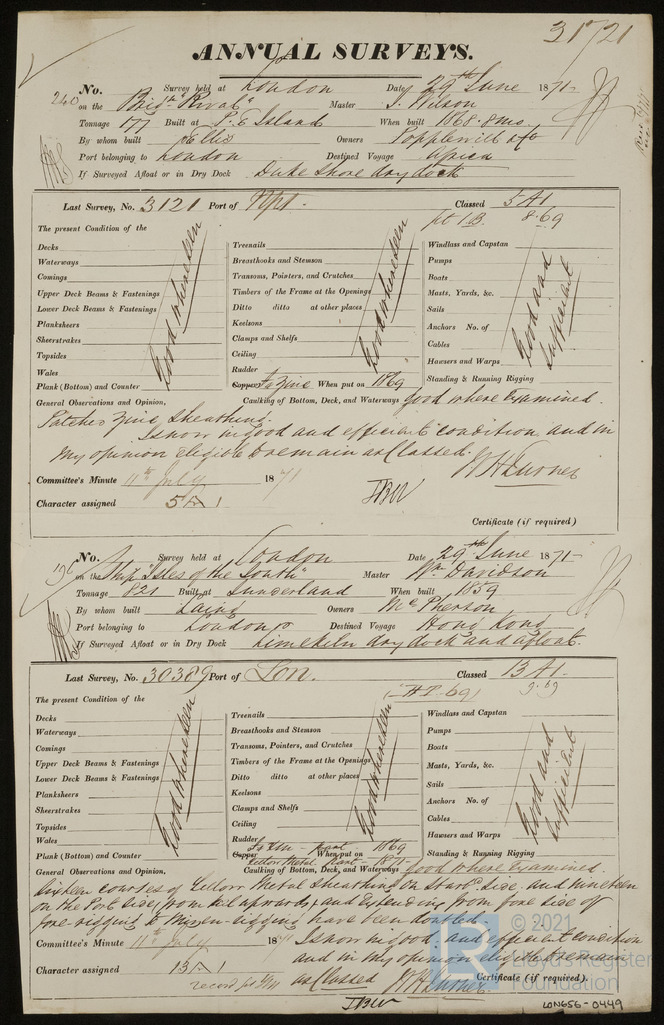 31721
ANNUAL SURVEYS.
240 No. Survey held at London Date 29th June 1871-
on the Brigtn "Rival" Master J. Wilson
Tonnage 177 Built at P. E. Island When built 1868. 8mo.
By whom built Ellis Owners Popplewill & Co
Port belonging to London Destined Voyage Africa
If Surveyed Afloat or in Dry Dock Duke Shore dry dock
Last Survey, No. 3121 Port of Classed 5A1
pt I.B. 8.69
The present Condition of the
Decks
Waterways
Comings
Upper Deck Beams & Fastenings
Lower Deck Beams & Fastenings
Planksheers
Sheerstrakes
Topsides
Wales
Plank (Bottom) and Counter
Good where seen
Treenails
Breasthooks and Stemson
Transoms, Pointers, and Crutches
Timbers of the Frame at the Openings
Ditto ditto at other places
Keelsons
Clamps and Shelfs
Ceiling
Rudder
Copper Zinc When put on 1869
Good where seen
Windlass and Capstan
Pumps
Boats
Masts, Yards, &c.
Sails
Anchors No. of
Cables
Hawsers and Warps
Standing & Running Rigging
Good and sufficient
General Observations and Opinion, Caulking of Bottom, Deck, and Waterways Good where Examined.
Patches Zinc Sheathing.
Is now in good and efficient condition and in
my opinion eligible to remain as Classed.
W H Turner
Committee's Minute 11th July 1871
IBW
Character assigned 5A1
Certificate (if required)
196 No. Survey held at London Date 29th June 1871-
on the Ship "Isles of the South" Master Wm Davidson
Tonnage 821 Built at Sunderland When built 1859
By whom built Laing Owners McPherson
Port belonging to London Destined Voyage Hong Kong
If Surveyed Afloat or in Dry Dock Limekiln dry dock and afloat.
Last Survey, No. 30389 Port of Lon. Classed 13A1-
9.69
The present Condition of the
Decks
Waterways
Comings
Upper Deck Beams & Fastenings
Lower Deck Beams & Fastenings
Planksheers
Sheerstrakes
Topsides
Wales
Plank (Bottom) and Counter
Good where seen
Treenails
Breasthooks and Stemson
Transoms, Pointers, and Crutches
Timbers of the Frame at the Openings
Ditto ditto at other places
Keelsons
Clamps and Shelfs
Ceiling
Rudder
part 1869
Copper When put on
Yellow Metal part - 1871-
Good where seen
Windlass and Capstan
Pumps
Boats
Masts, Yards, &c.
Sails
Anchors No. of
Cables
Hawsers and Warps
Standing & Running Rigging
Good and sufficient
General Observations and Opinion, Caulking of Bottom, Deck, and Waterways Good where Examined.
Sixteen courses of Yellow Metal Sheathing on Starbd Side. and nineteen
on the Port Side, from keel upwards, and Extending from fore side of
fore-rigging to Mizen-rigging have been doubled.
Committee's Minute 11th July 1871 Is now in good and efficient condition
and in my opinion eligible to remain
Character assigned 13A1 as Classed W H Turner Certificate (if required).
IBW
© 2021
Lloyd's Register
Foundation
LON656-0449